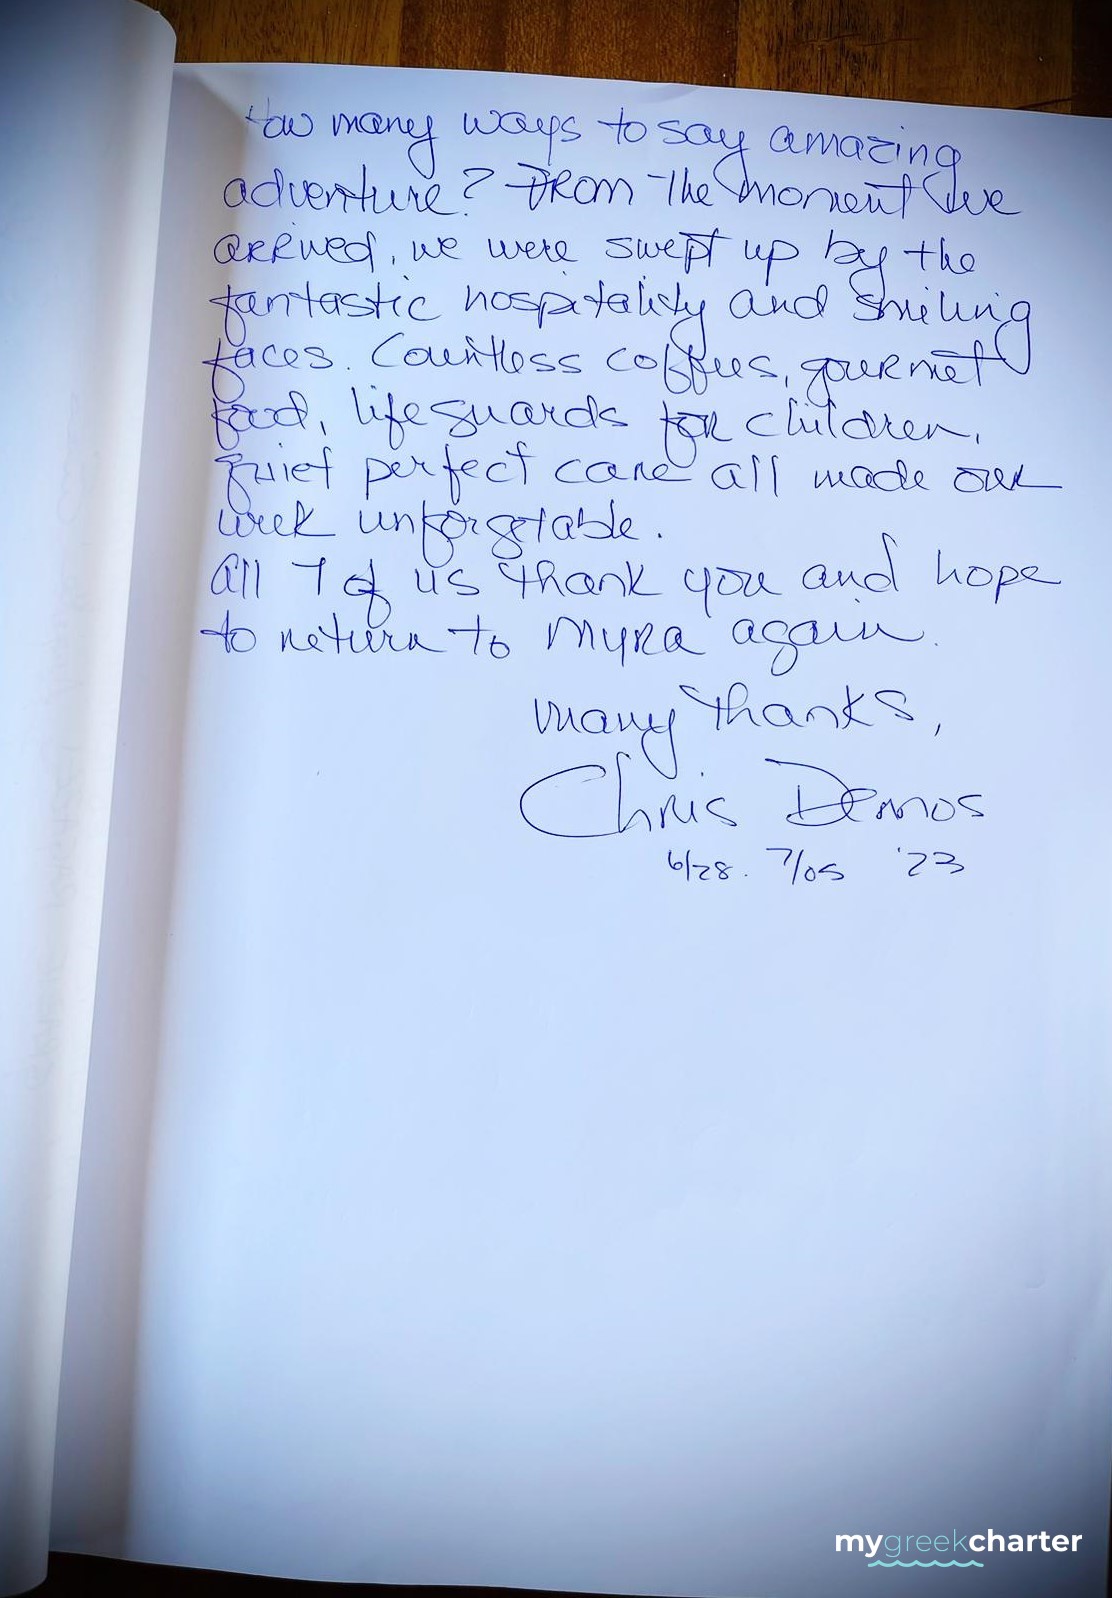 How many ways to say amazing
adventure? From the moment we
arrived, we were swept up by the
fantastic hospitality and smiling
faces. Countless coffees, gourmet
food, lifeguards for children,
quiet perfect care all made our
week unforgetable.
All 7 of us thank you and hope
to return to Myra again.
Many thanks,
Chris Demos
6/28. 7/05 '23
mygreekcharter